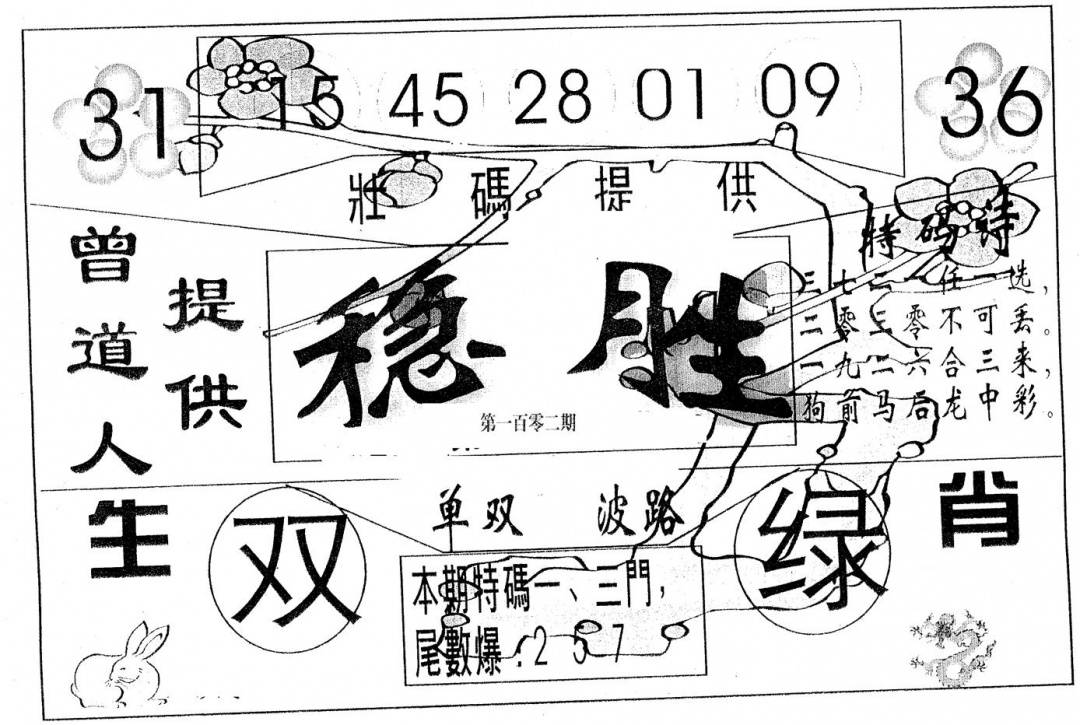 31 15 45 28 01 09 36
壯碼提供
曾道人
提供
稳胜
第一百零二期
特码诗
三七二一任一选，
二零三零不可丢。
一九二六合三来，
狗前马后龙中彩。
生肖
单双 波路
双 绿
本期特碼一、三門，
尾數爆：2 5 7